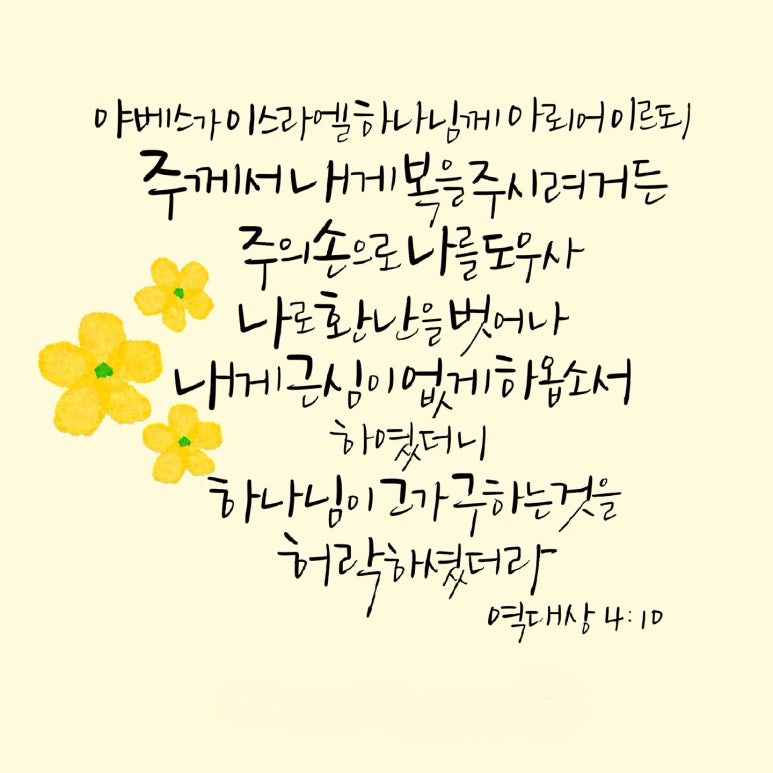 야베스가 이스라엘 하나님께 아뢰어 이르되
주께서 내게 복을 주시려거든
주의 손으로 나를 도우사
나로 환난을 벗어나
내게 근심이 없게 하옵소서
하였더니
하나님이 그가 구하는 것을
허락하셨더라
역대상 4:10